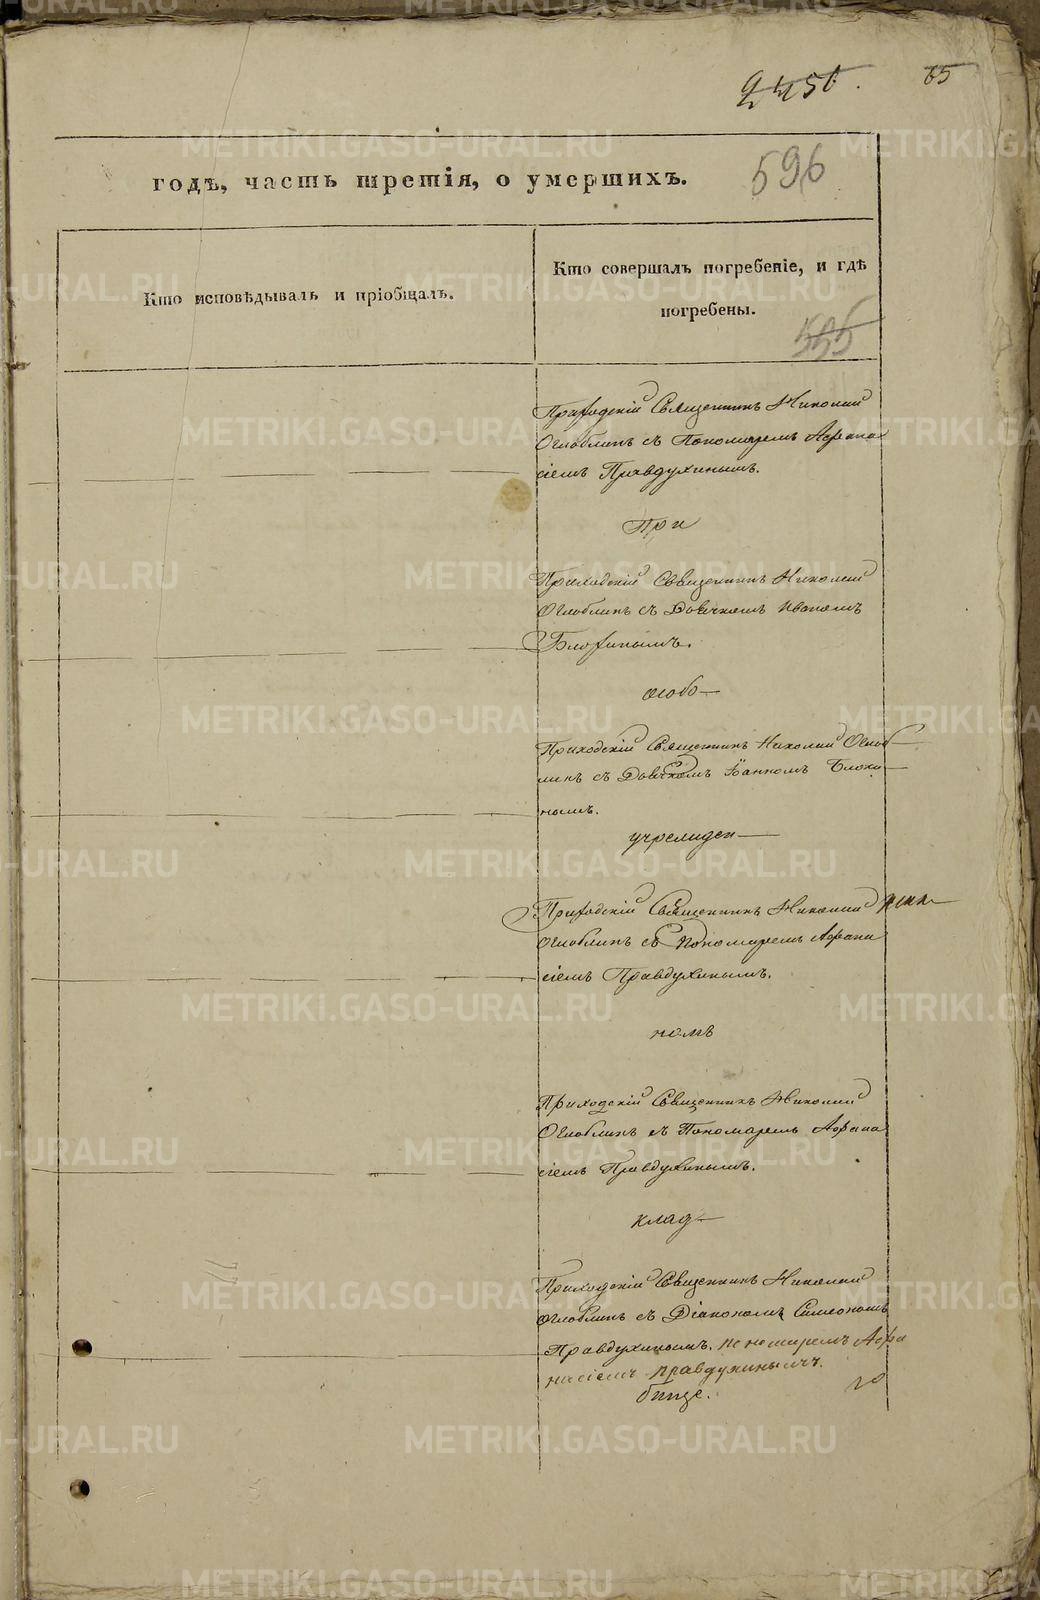 65
596
годѣ, часть третія, о умершихъ.
Кто исповѣдывалъ и пріобщалъ.
Кто совершалъ погребеніе, и гдѣ
погребены.
555
Приходскій Священникъ Николай
Оглоблинъ съ Пономаремъ Афана
сіемъ Правдухинымъ.
При
Приходскій Священникъ Николай
Оглоблинъ съ Дьячкомъ Иваномъ
Блохинымъ.
особо
Приходскій Священникъ Николай Оглоб
линъ съ Дьячкомъ Іоанномъ Блохи
нымъ.
учрежден
Приходскій Священникъ Николай
Оглоблинъ съ Пономаремъ Афана
сіемъ Правдухинымъ.
номъ
Приходскій Священникъ Николай
Оглоблинъ съ Пономаремъ Афана
сіемъ Правдухинымъ.
клад
Приходскій Священникъ Николай
Оглоблинъ съ Діакономъ Симеономъ
Правдухинымъ. Пономаремъ Афа
насіемъ Правдухинымъ.
бище.
METRIKI.GASO-URAL.RU